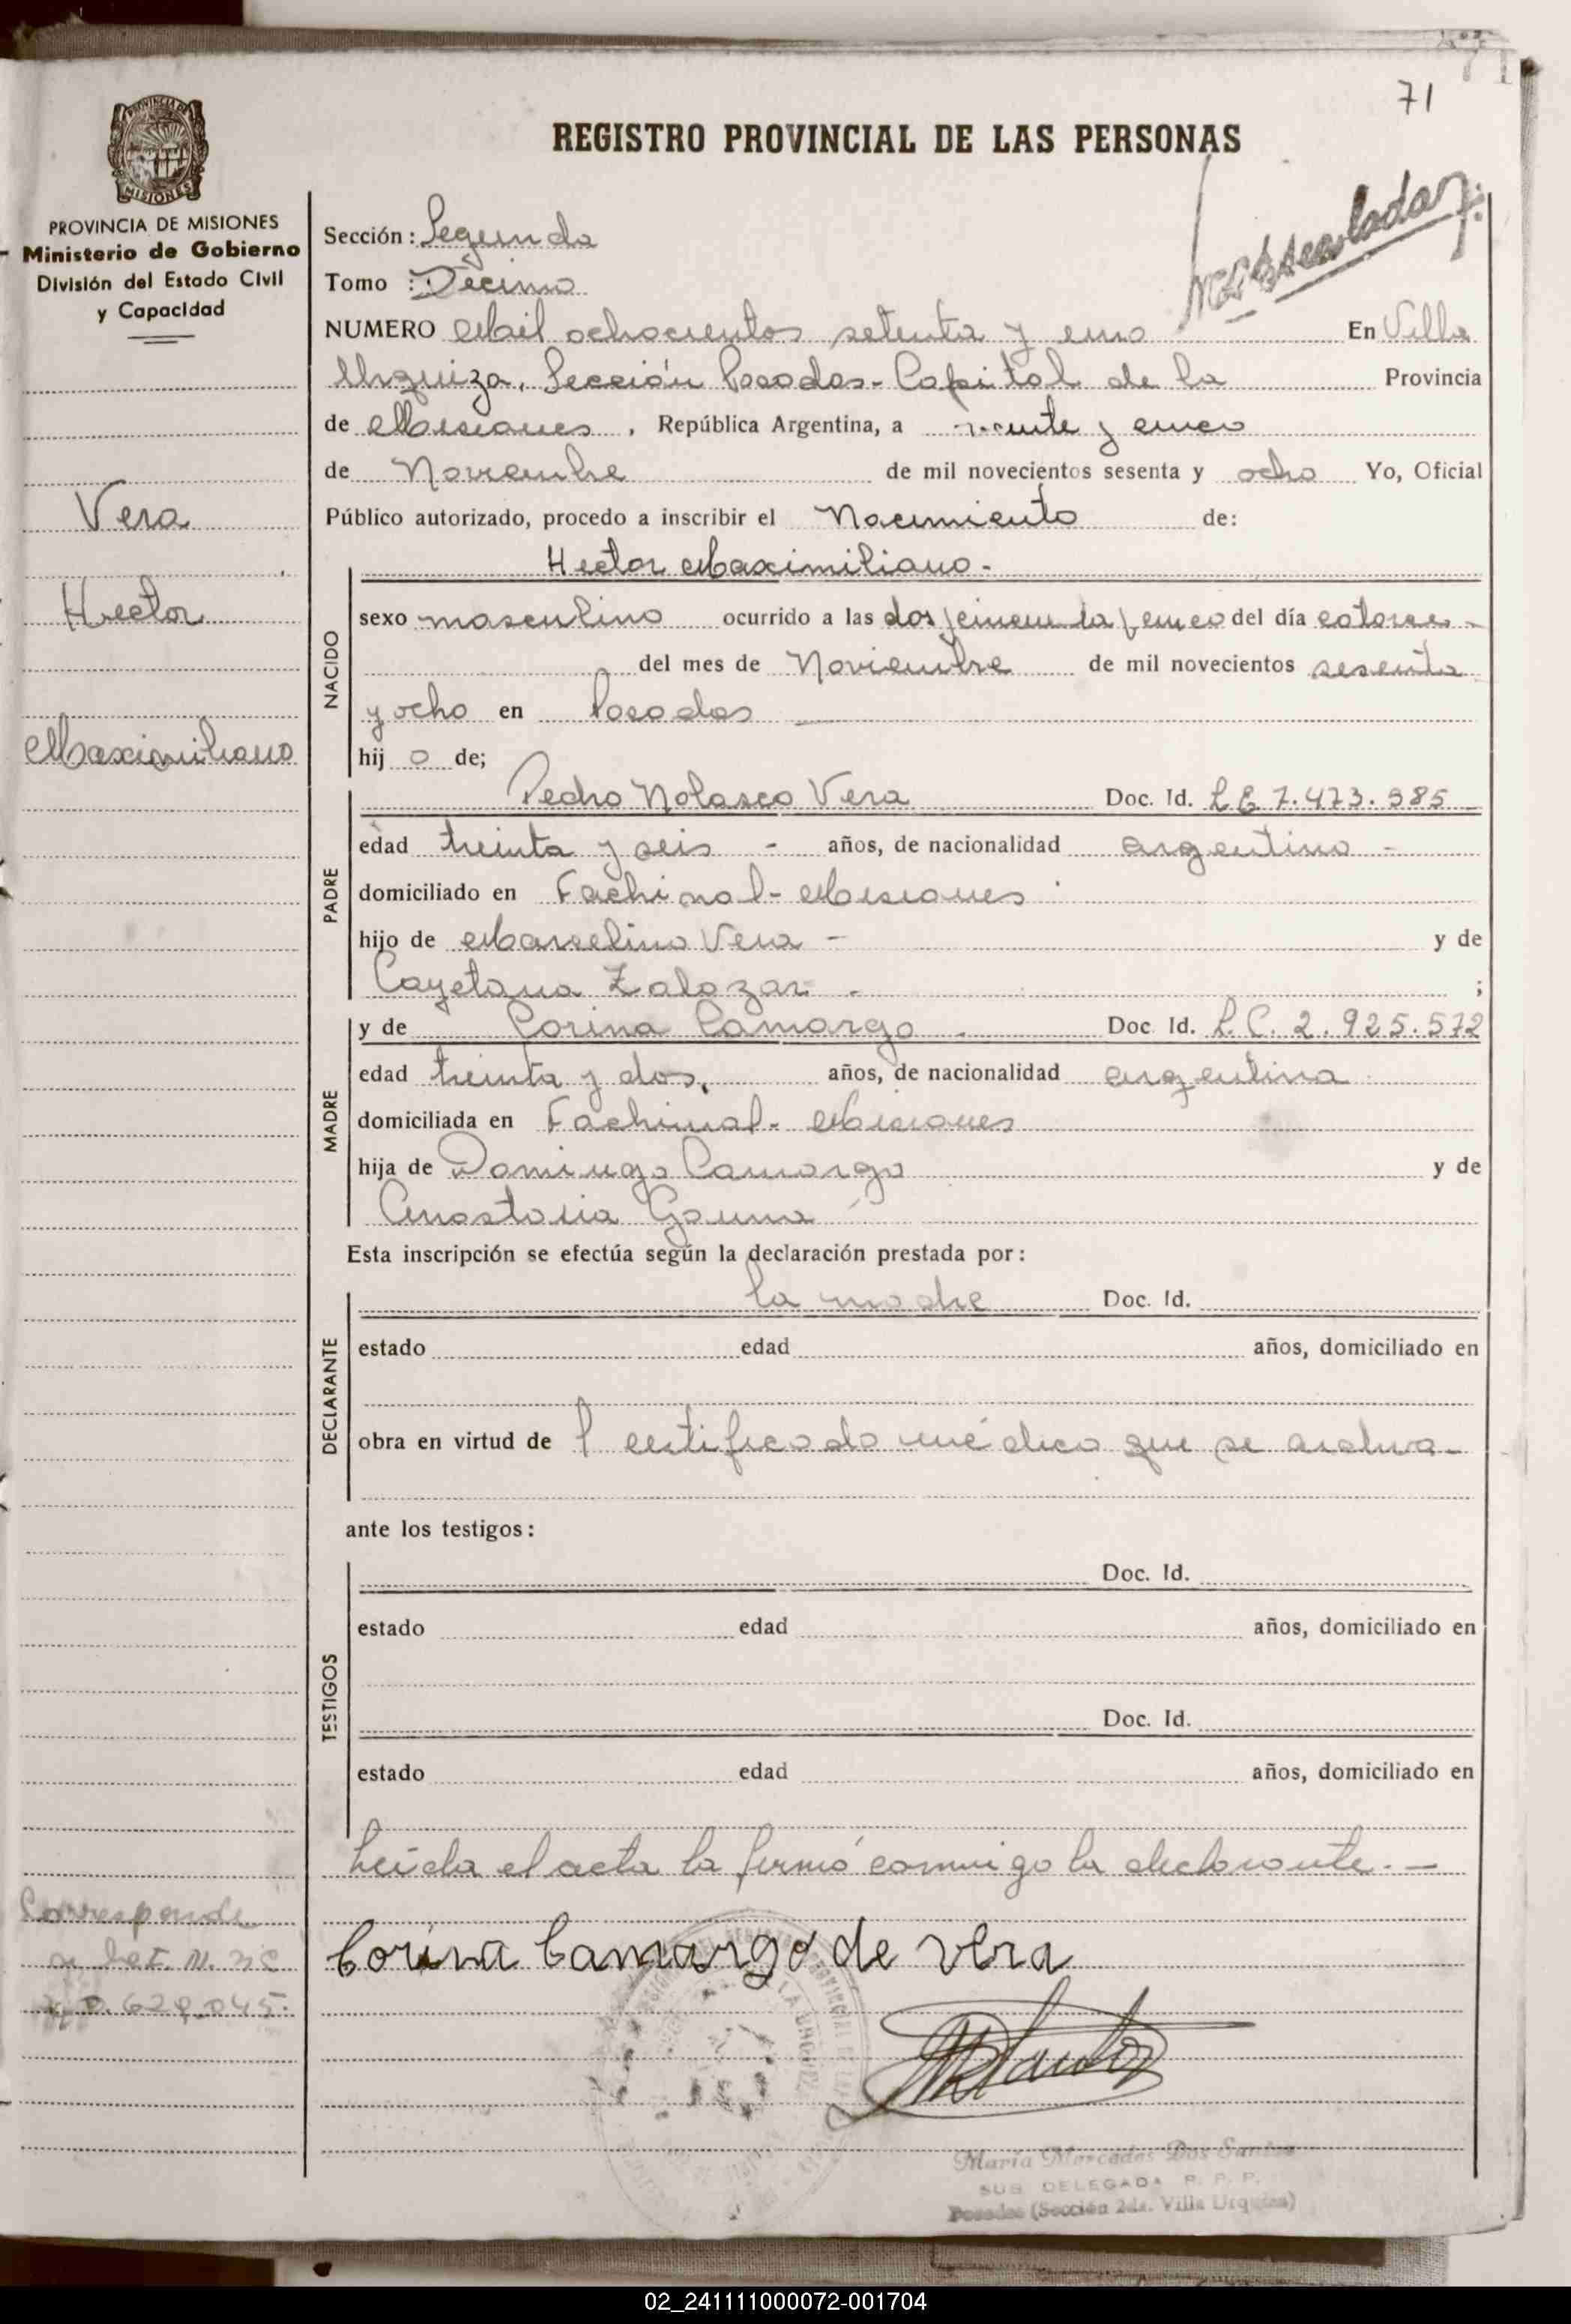 71
REGISTRO PROVINCIAL DE LAS PERSONAS
PROVINCIA DE MISIONES
Ministerio de Gobierno
División del Estado Civil
y Capacidad
Vera
Hector
Maximiliano
Sección: Segunda
Tomo: Décimo
NUMERO Mil ochocientos setenta y uno En Villa
Urquiza, Sección Posadas - Capital de la Provincia
de Misiones, República Argentina, a veinte y cinco
de Noviembre de mil novecientos sesenta y ocho Yo, Oficial
Público autorizado, procedo a inscribir el Nacimiento de:
Hector Maximiliano -
NACIDO
sexo masculino ocurrido a las dos y cincuenta y cinco del día catorce -
del mes de Noviembre de mil novecientos sesenta
y ocho en Posadas
hij o de;
PADRE
Pedro Nolasco Vera Doc. Id. L E 7.473.985
edad treinta y seis - años, de nacionalidad argentino -
domiciliado en Fachinal - Misiones
hijo de Marcelino Vera - y de
Cayetana Zalazar - ;
MADRE
y de Corina Camargo - Doc. Id. L.C. 2.925.572
edad treinta y dos, años, de nacionalidad argentina
domiciliada en Fachinal - Misiones
hija de Domingo Camargo y de
Anastacia Gauna
Esta inscripción se efectúa según la declaración prestada por:
DECLARANTE
la madre Doc. Id.
estado edad años, domiciliado en
obra en virtud de l certificado médico que se archiva -
ante los testigos:
TESTIGOS
Doc. Id.
estado edad años, domiciliado en
Doc. Id.
estado edad años, domiciliado en
Leída el acta la firmó conmigo la declarante. -
Corresponde
Corina Camargo de Vera
María Mercedes Dos Santos
SUB DELEGADA R. P. P.
Posadas (Sección 2da. Villa Urquiza)
02_241111000072-001704